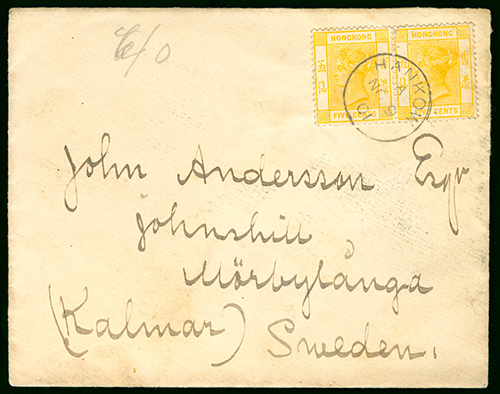 C/o
HONGKONG HONGKONG
FIVE CENTS CENTS
HANKOW
A
01
John Andersson Esqr
Johnshill
Mörbylånga
(Kalmar) Sweden.